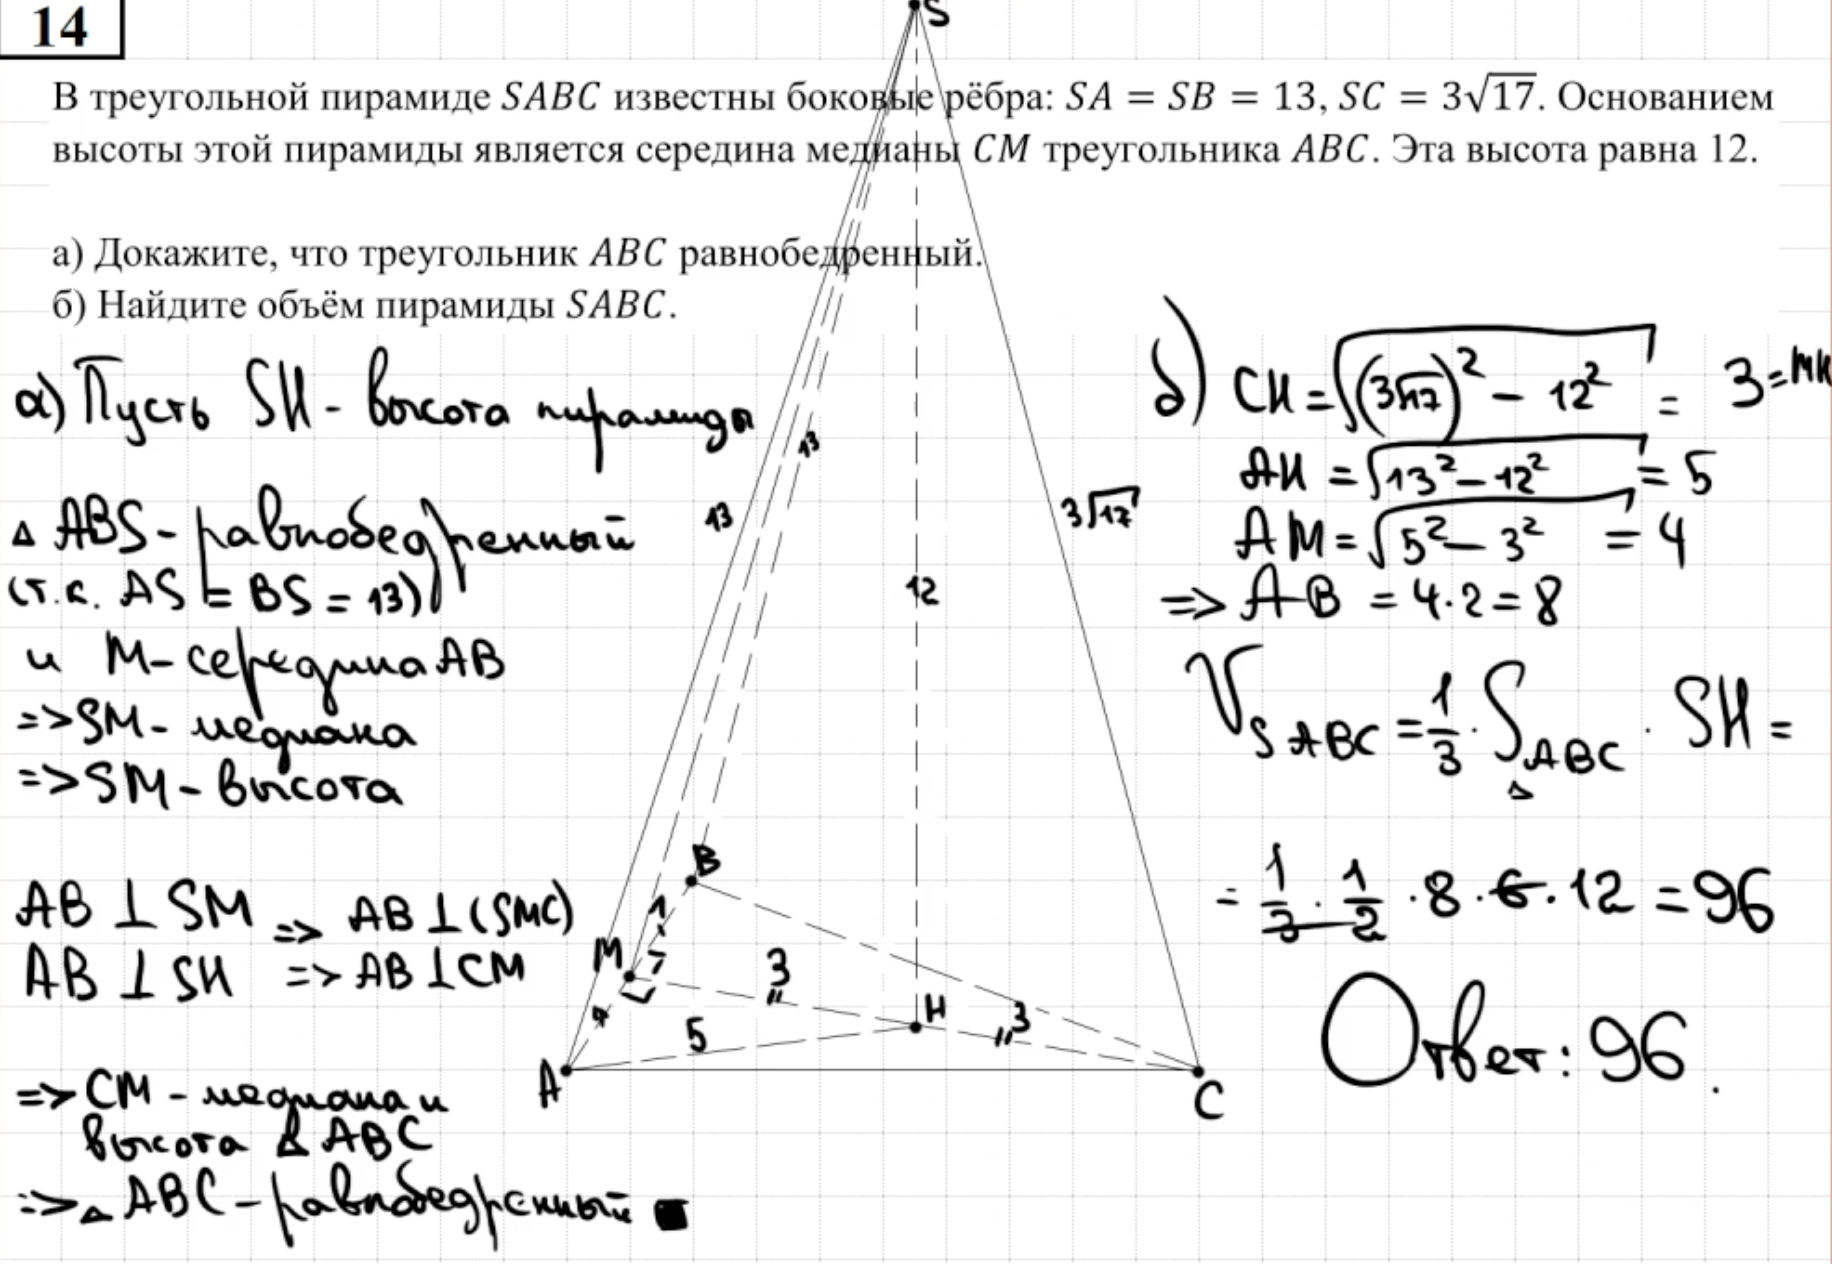 14
S
В треугольной пирамиде SABC известны боковые рёбра: SA = SB = 13, SC = 3√17. Основанием
высоты этой пирамиды является середина медианы CM треугольника ABC. Эта высота равна 12.
а) Докажите, что треугольник ABC равнобедренный.
б) Найдите объём пирамиды SABC.
а) Пусть SH - высота пирамиды
△ ABS - равнобедренный
(т.к. AS = BS = 13)
и M - середина AB
=> SM - медиана
=> SM - высота
AB ⊥ SM => AB ⊥ (SMC)
AB ⊥ SH => AB ⊥ CM
=> CM - медиана и
высота △ ABC
=> △ ABC - равнобедренный
13
13
12
3√17
B
M
3
H
3
5
A
C
б) CH = √((3√17)² - 12²) = 3 = MH
AH = √(13² - 12²) = 5
AM = √(5² - 3²) = 4
=> AB = 4·2 = 8
V SABC = 1/3 · S △ABC · SH =
= 1/3 · 1/2 · 8 · 6 · 12 = 96
Ответ: 96.